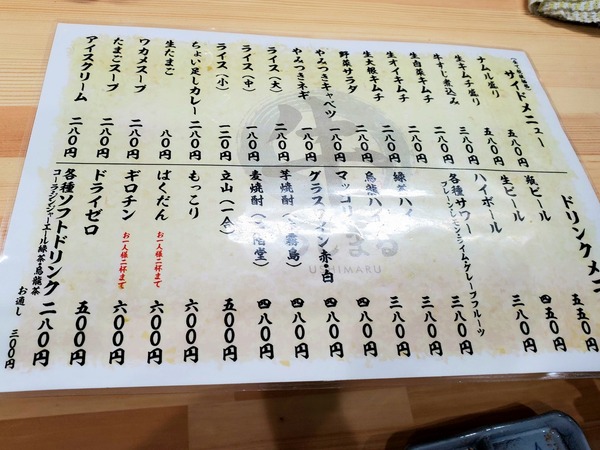 サイドメニュー
ナムル盛り 五八〇円
生キムチ盛り 五八〇円
牛すじ煮込み 三八〇円
生白菜キムチ 二八〇円
生オイキムチ 二八〇円
生大根キムチ 二八〇円
野菜サラダ 二八〇円
やみつきキャベツ 一八〇円
やみつきネギ 一八〇円
ライス(大) 二八〇円
ライス(中) 一八〇円
ライス(小) 一二〇円
ちょい足しカレー 二八〇円
生たまご 八〇円
ワカメスープ 二八〇円
たまごスープ 二八〇円
アイスクリーム 二八〇円
ドリンクメニ
瓶ビール 五五〇円
生ビール 四五〇円
ハイボール 三八〇円
各種サワー 三八〇円
プレーン・レモン・ライム・グレープフルーツ
緑茶ハイ 三八〇円
烏龍ハイ 三八〇円
マッコリ 四八〇円
グラスワイン赤・白 四八〇円
芋焼酎(霧島) 四八〇円
麦焼酎(二階堂) 四八〇円
立山(一合) 五〇〇円
もっこり 六〇〇円
ばくだん お一人様二杯まで 六〇〇円
ギロチン お一人様二杯まで 六〇〇円
ドライゼロ 五〇〇円
各種ソフトドリンク 二八〇円
コーラ・ジンジャーエール・緑茶・烏龍茶
お通し 三〇〇円
USHIMARU